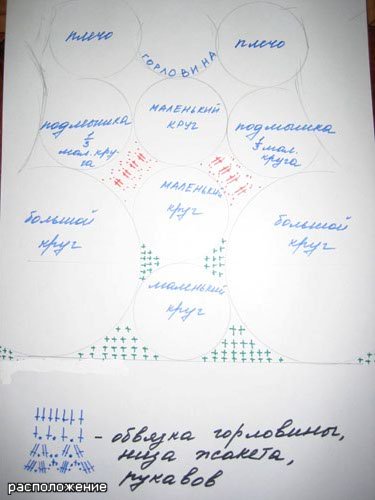 плечо
плечо
ГОРЛОВИНА
МАЛЕНЬКИЙ
КРУГ
подмышка
1/3
мал. кру-
га
подмышка
1/3 мал.
круга
МАЛЕНЬКИЙ
круг
большой
круг
большой
круг
маленький
круг
- обвязка горловины,
низа жакета,
рукавов
расположение